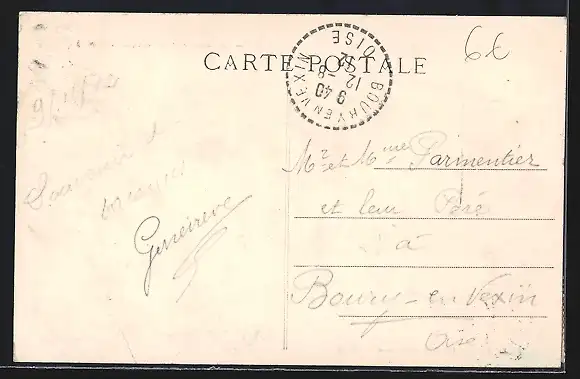 6€
CARTE POSTALE
BOURY EN VEXIN
9 40
12 - 8
12
OISE
Mr et Mme Parmentier
et leur Père
à
Boury-en-Vexin
Oise
Souvenir
Geneviève